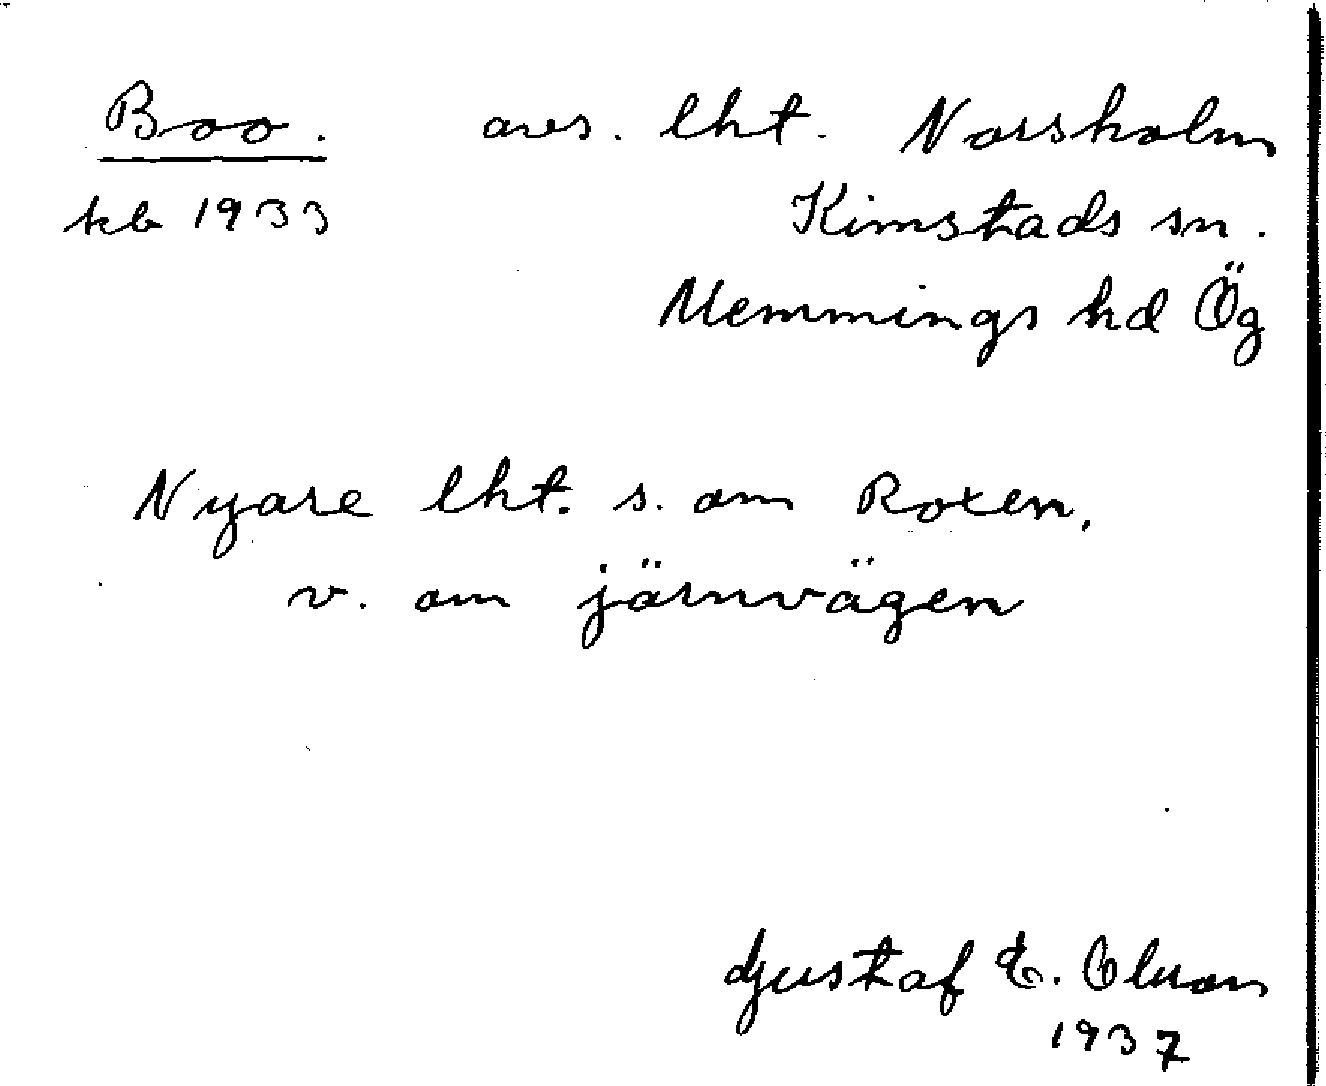 Boo. avs. lht. Norsholm
kb 1933 Kimstads sn.
Memmings hd Ög
Nyare lht. s. om Roxen,
v. om järnvägen
Gustaf E. Olsson
1937